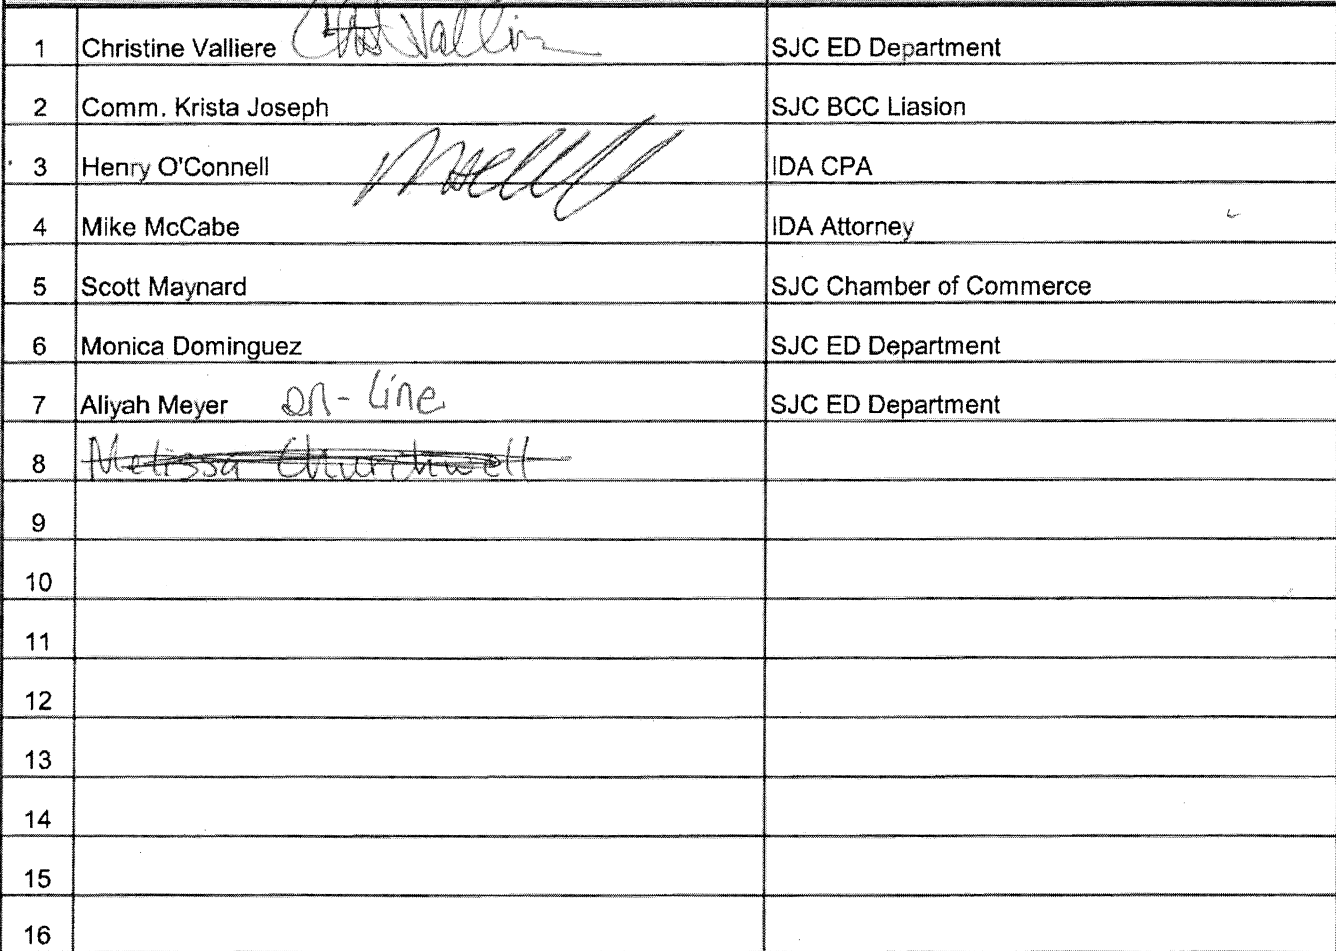 1 Christine Valliere SJC ED Department
2 Comm. Krista Joseph SJC BCC Liasion
3 Henry O'Connell IDA CPA
4 Mike McCabe IDA Attorney
5 Scott Maynard SJC Chamber of Commerce
6 Monica Dominguez SJC ED Department
7 Aliyah Meyer on-line SJC ED Department
8 Melissa Churchwell
9
10
11
12
13
14
15
16